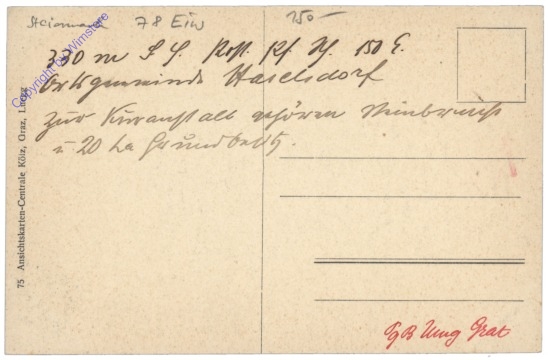 Steiermark 78 Eiw 150-
330 m S. H. Post. Kf. H. 150 E.
Ortsgemeinde Haselsdorf
zur Kuranstalt gehören Steinbruch
u 20 ha Grundbesitz.
Copyright by Wimstere
75 Ansichtskarten-Centrale Kölz, Graz, Lueg
GB Umg Graz